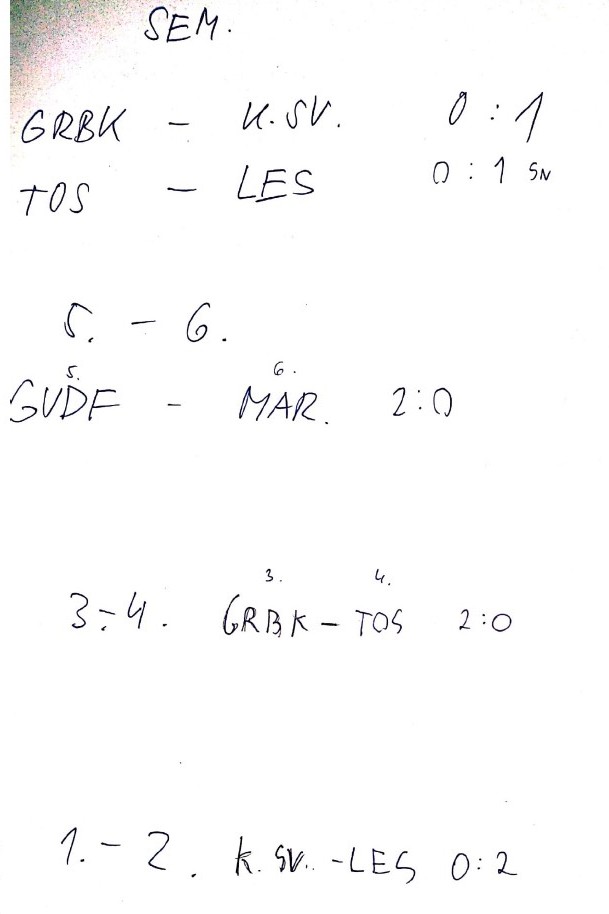 SEM.
GRBK - K.SV. 0:1
TOS - LES 0:1 SN
5. - 6.
5. 6.
GVDF - MAR. 2:0
3. 4.
3.-4. GRBK - TOS 2:0
1. - 2. K. SV. - LES 0:2